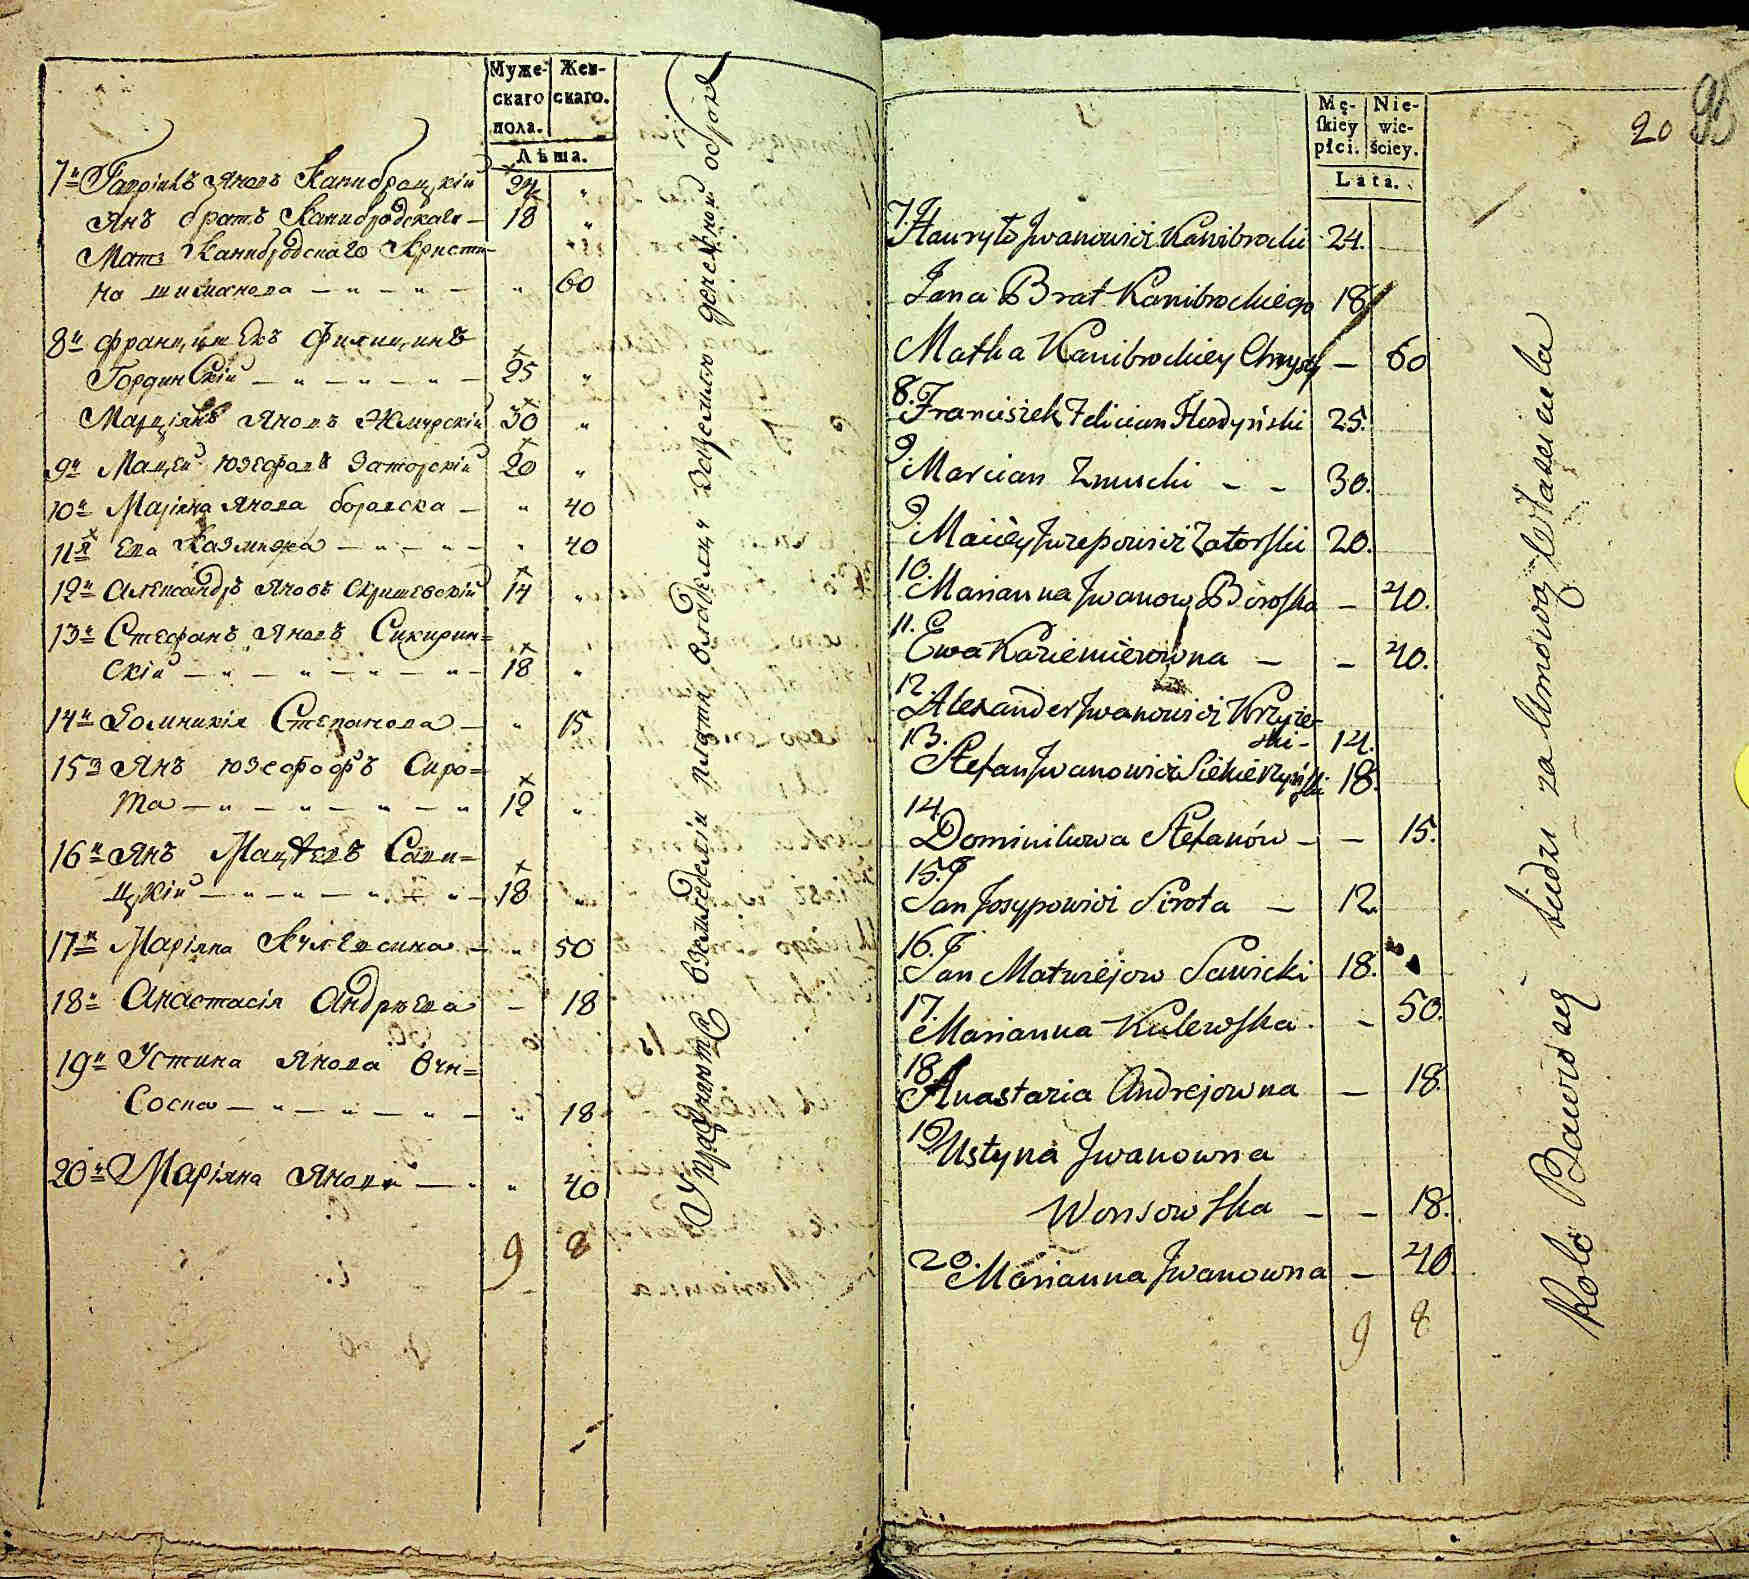 Муже-
скаго
пола.
Жен-
скаго.
Лѣта.
7й Гаврiилъ Яновъ Канибродцкiй 24 "
Янъ братъ Канибродскаго — 18 "
Мать Канибродскаго Кристи-
на — " — " — " 60
8й Францишекъ Фелицинъ
Гординскiй — " — " — " — 25 "
Марцiянъ Яновъ Жмурскiй 30 "
9й Мацей Юзефовъ Заторскiй 20 "
10й Марiяна Янова боровска — " 40
11я Ева Казмижа — " — " — " 40
12й Александръ Яновъ Скришевскiй 14 "
13й Стефанъ Яновъ Сикирин=
скiй — " — " — " — " — 18 "
14й Доминикiя Степанова — " 15
15й Янъ Юзефофъ Сиро=
та — " — " — " — " 12 "
16й Янъ Мацѣевъ Сави=
цкiй — " — " — " — 18 "
17я Марiяна — " 50
18й Анастасiя Андрѣева — 18
19й Устина Янова Вон=
Соска — " — " — " — " 18
20й Марiяна Янова — " " 40
9 8
Mę-
skiey
płci.
Nie-
wie-
ściey.
Lata.
20 95
7. Hauryło Jwanowicz Kanibrocki 24.
Jana Brat Kanibrockiego 18
Matka Kanibrockiey Chryst — 60
8. Franciszek Felician Hordyński 25.
9. Marcian Zmucki — — 30.
9. Maciey Juzepowicz Zatorski 20.
10. Marianna Jwanow Boroska — 40.
11. Ewa Kaziemierówna — — 40.
12. Alexander Jwanowicz Krzyże-
ski — 14.
13. Stefan Jwanowicz Siekierzyński 18.
14. Dominikowa Stefanów — — 15.
15. Jan Josypowicz Sirota — 12.
16. Jan Matwiejow Sawicki 18.
17. Marianna Kulewska. — 50.
18. Anastazia Andrejowna — 18.
19. Ustyna Jwanowna
Wonsowska — — 18.
20. Marianna Jwanowna — 40.
9 8
Koło Bawią się ludzi za Umową Własciciela